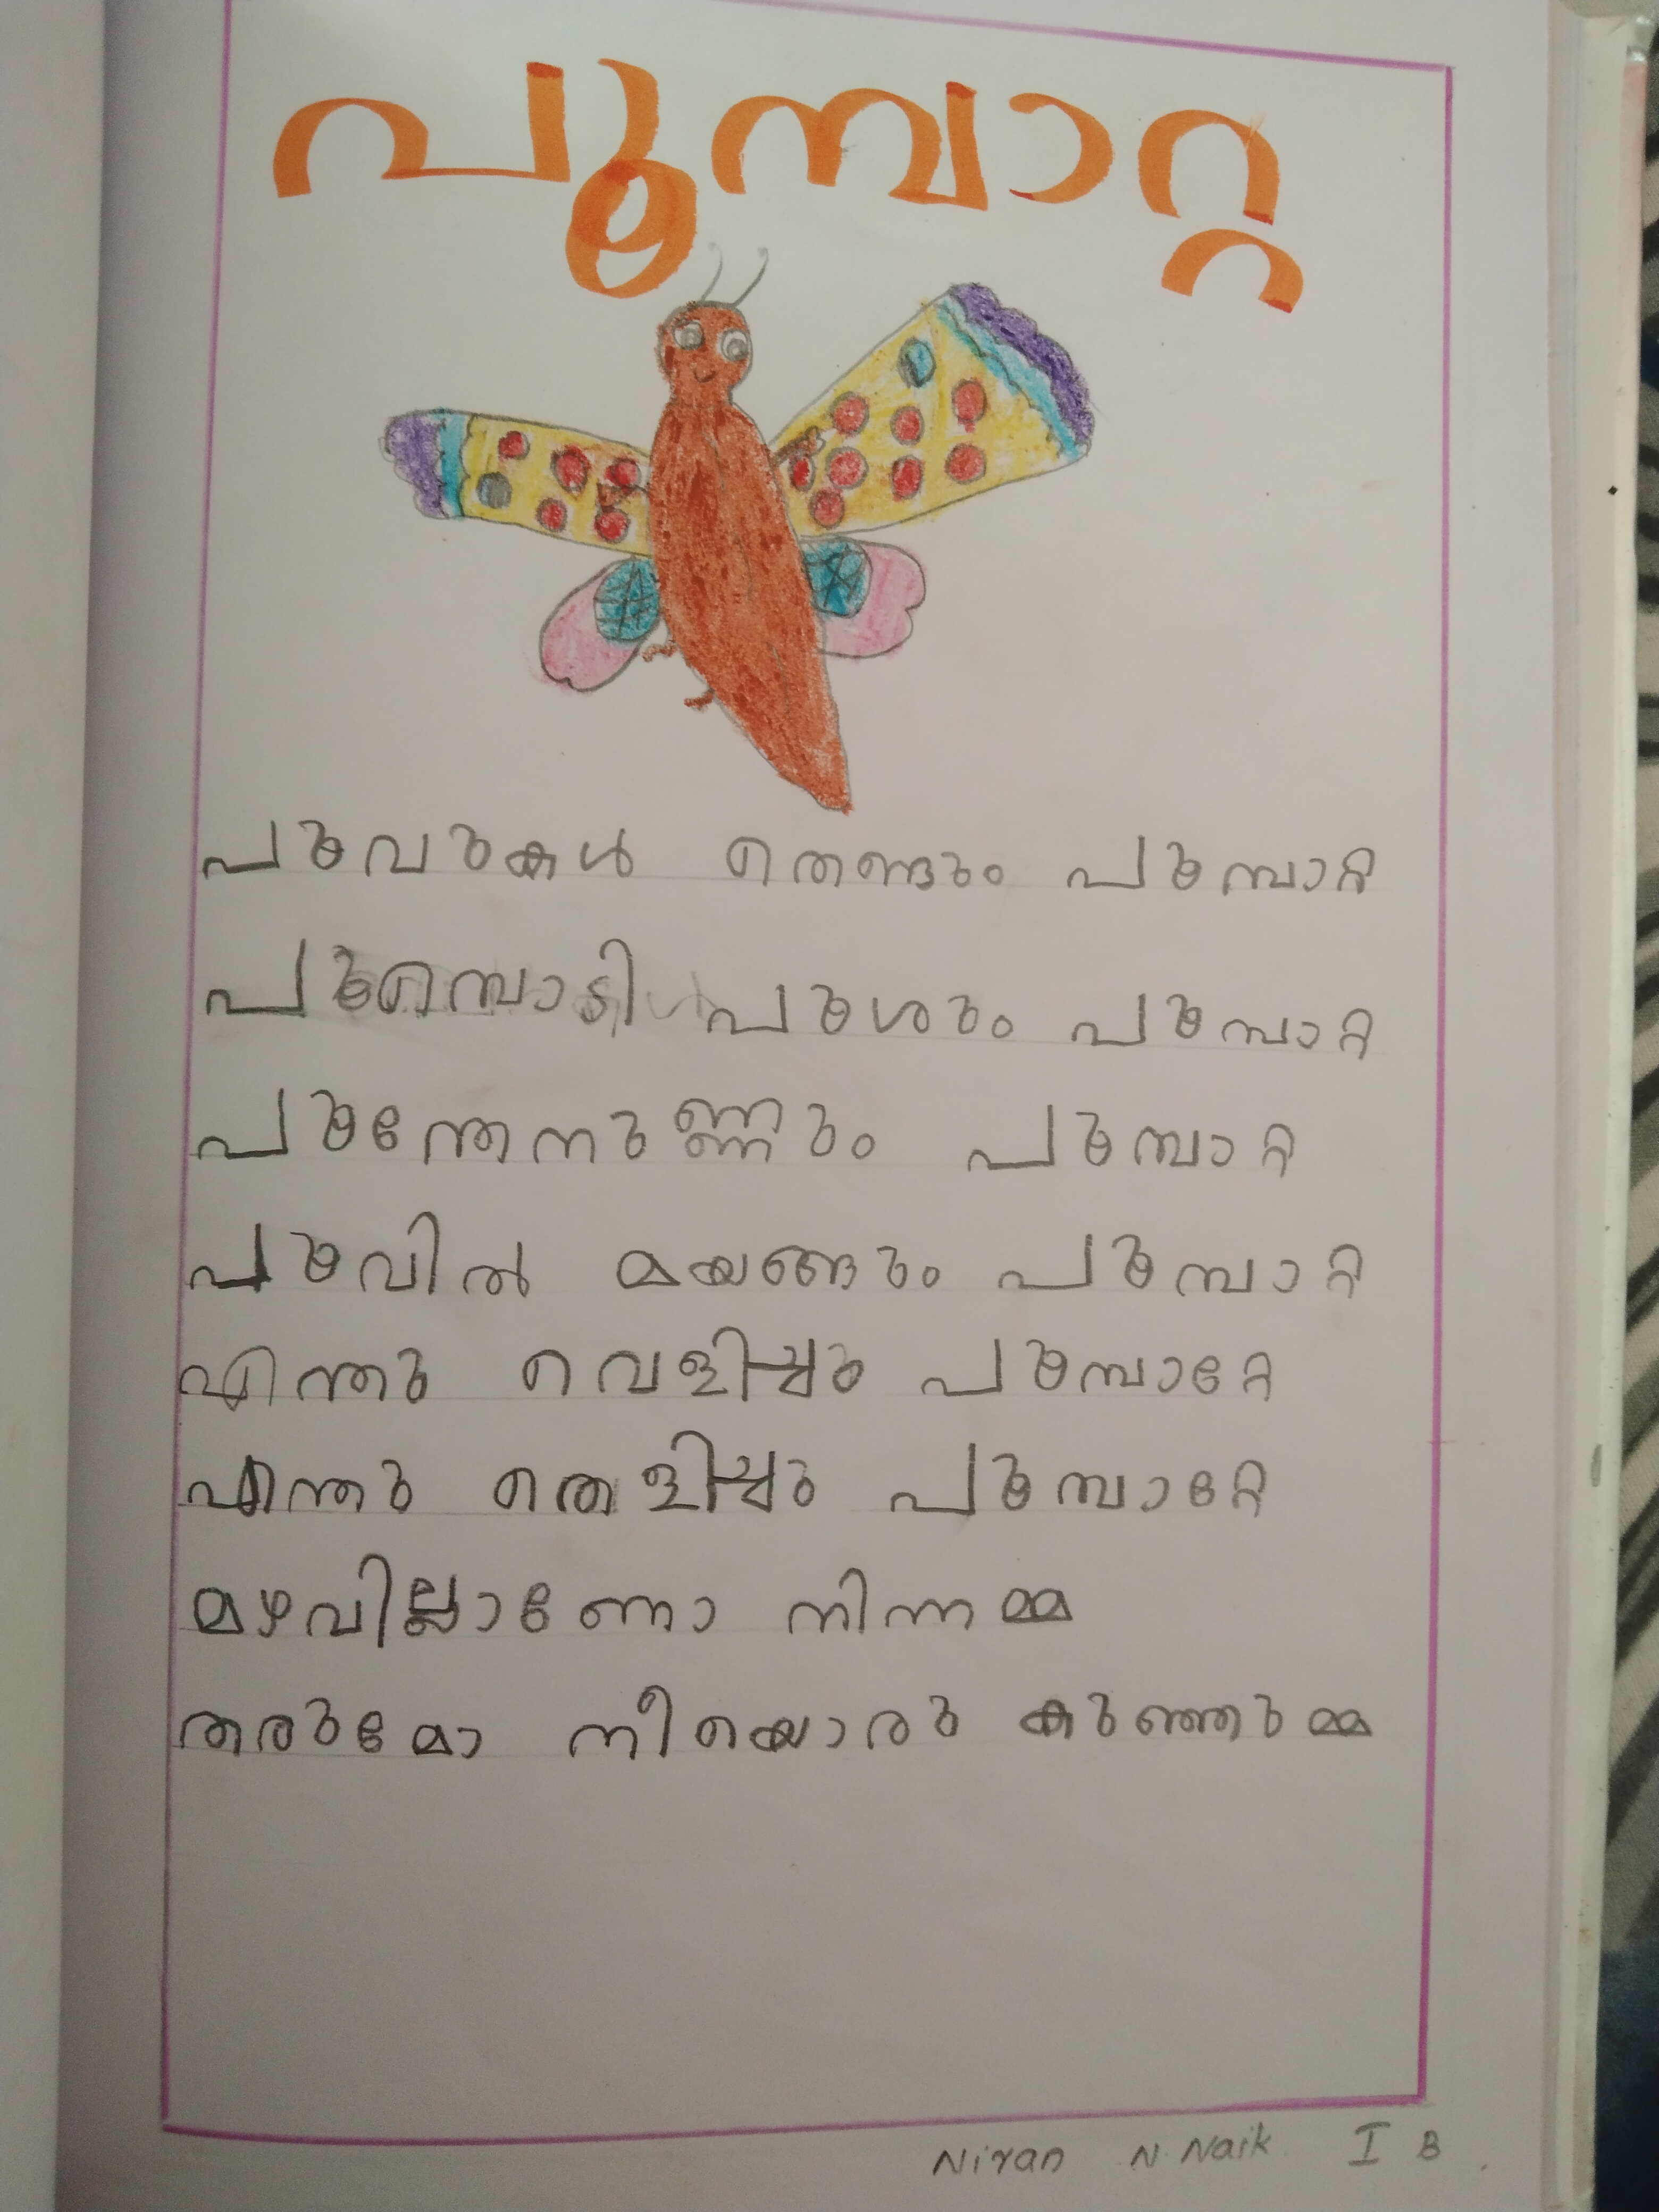 പൂമ്പാറ്റ
പൂവുകൾ തെണ്ടും പൂമ്പാറ്റ
പൂമ്പൊടി പൂശും പൂമ്പാറ്റ
പൂന്തേനുണ്ണും പൂമ്പാറ്റ
പൂവിൽ മയങ്ങും പൂമ്പാറ്റ
എന്തു വെളിച്ചു പൂമ്പാറ്റേ
എന്തു തെളിച്ചു പൂമ്പാറ്റേ
മഴവില്ലാണോ നിന്നമ്മ
തരുമോ നീയൊരു കുഞ്ഞുമ്മ
Niran N Naik I B